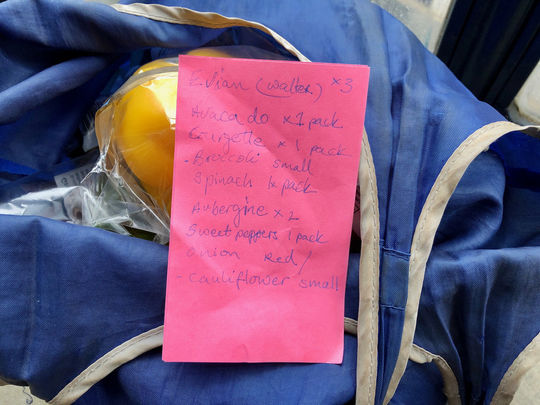 Evian (walter) ×3
Avacado ×1 pack
Courgette × 1 pack
- Broccoli small
Spinach 1x pack
Aubergine × 2
Sweet peppers 1 pack
onion Red /
- Cauliflower small